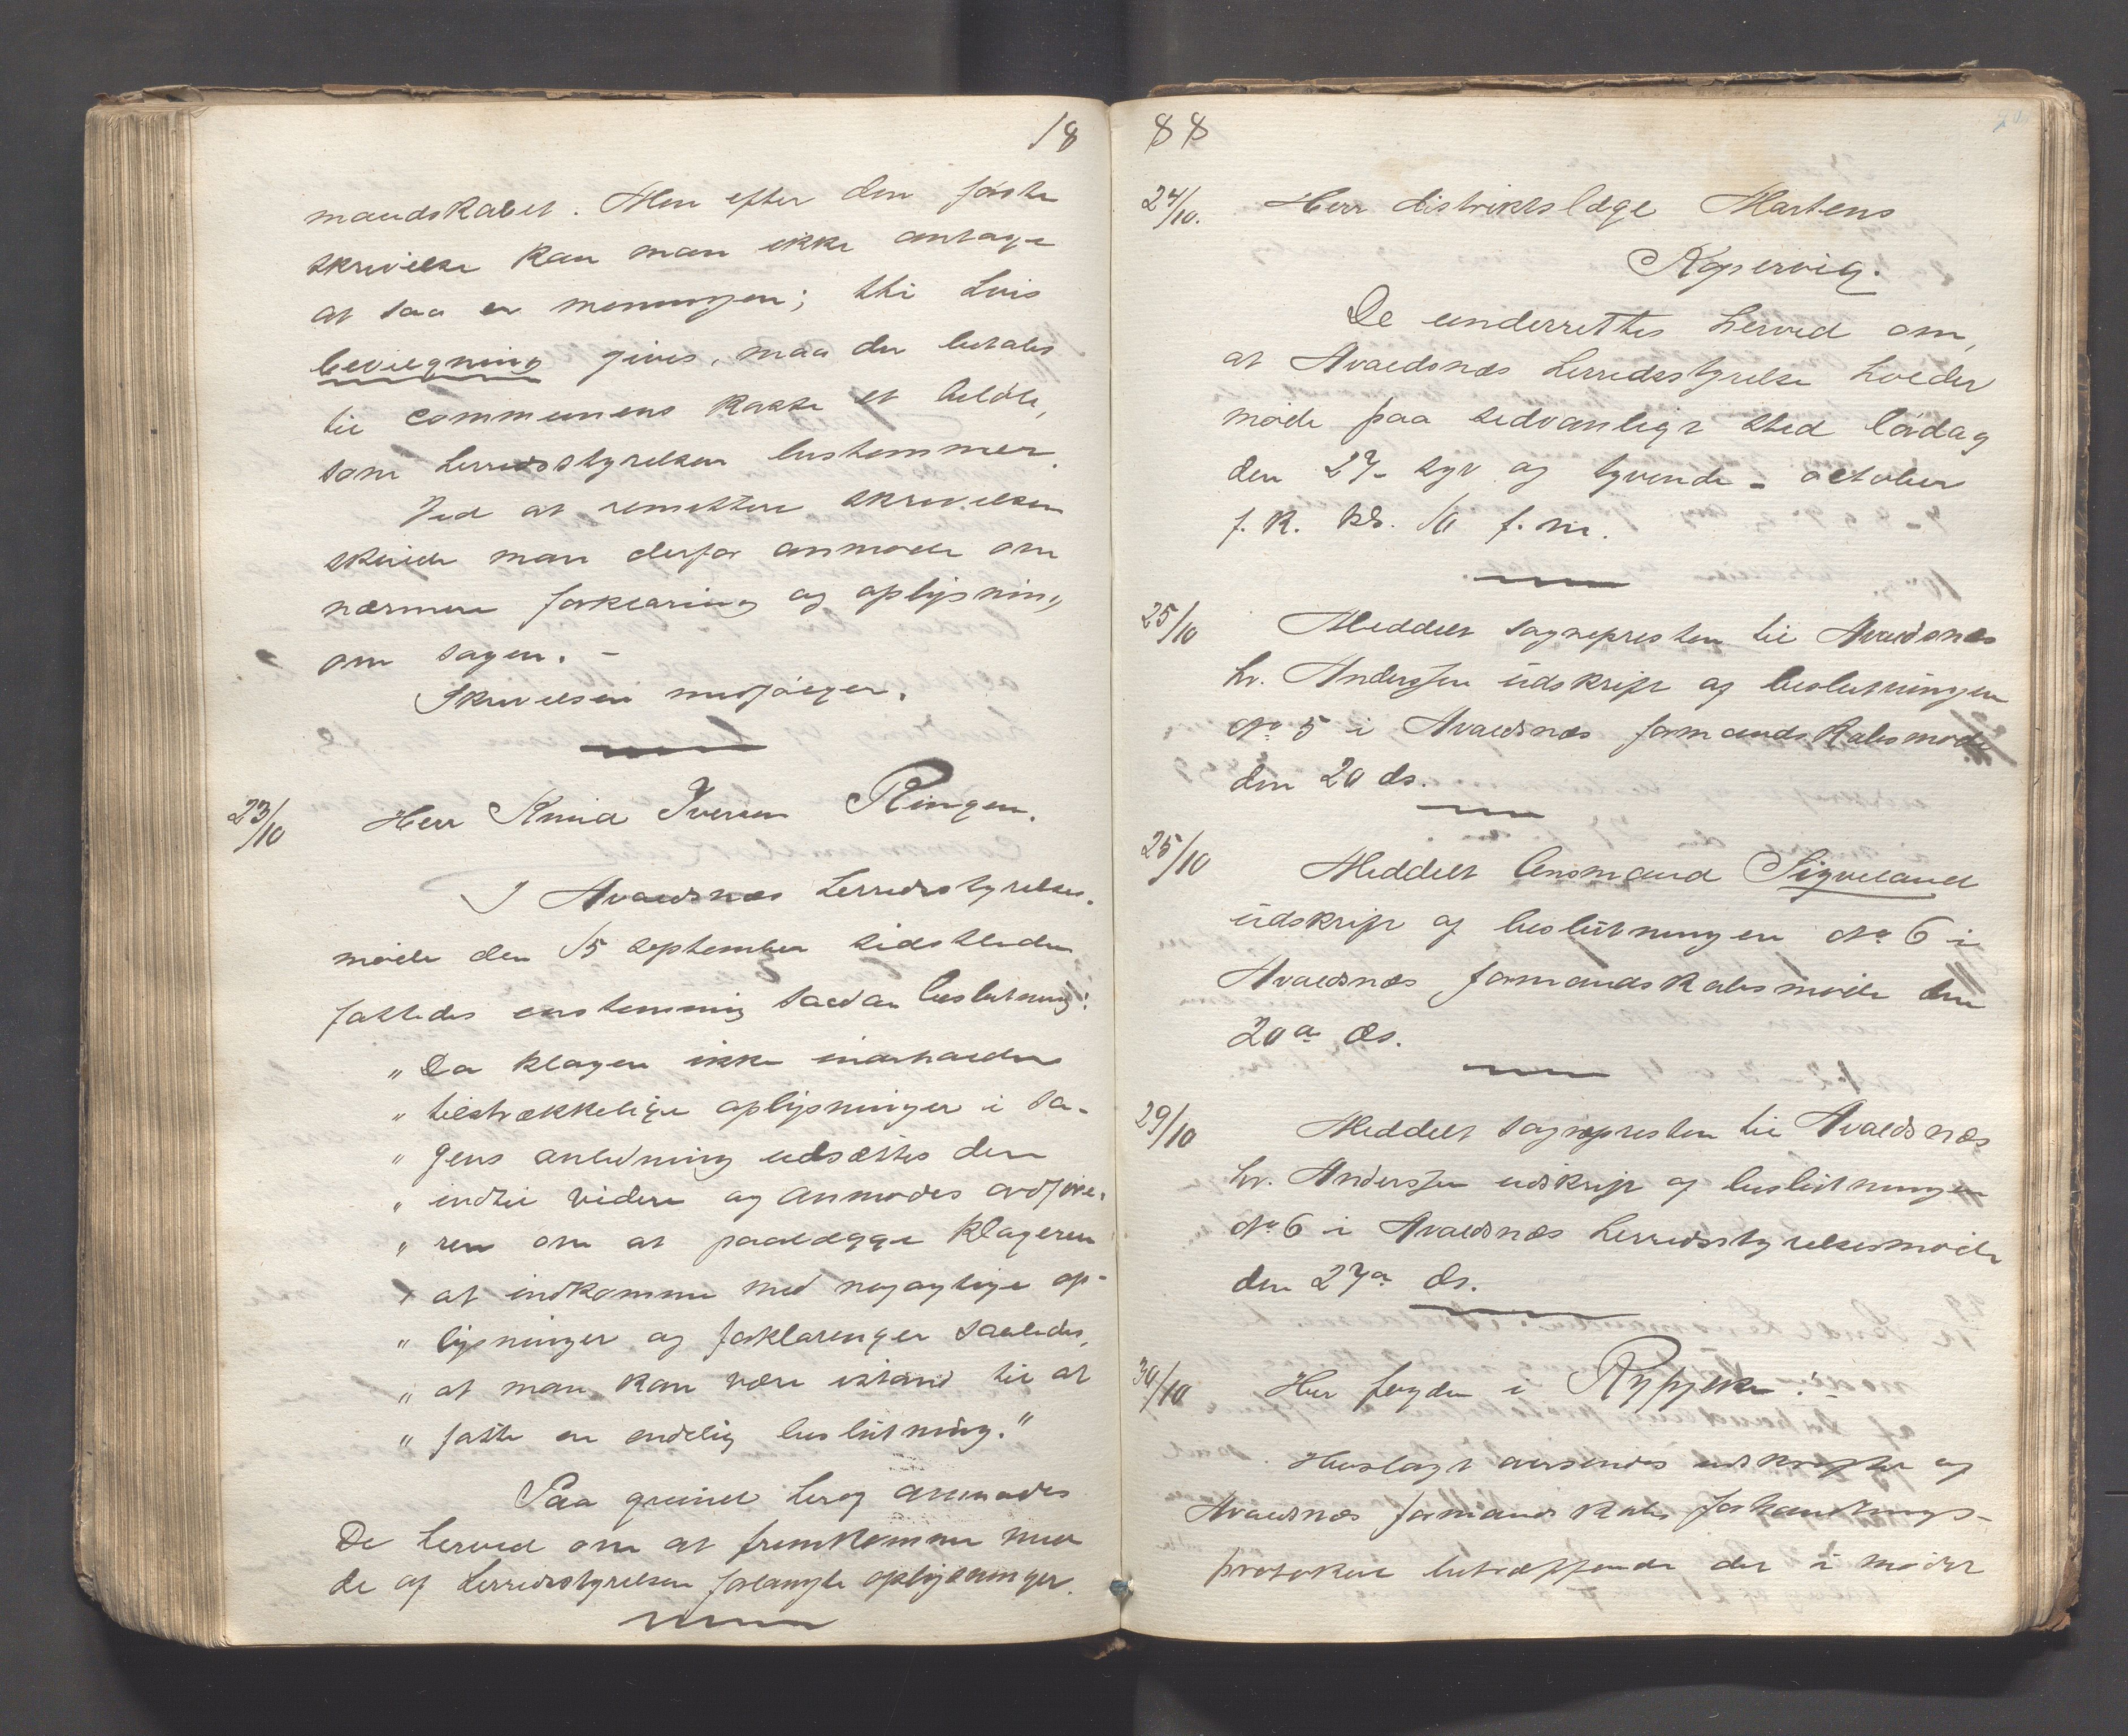 18
mandskabet. Men efter den første
skrivelse kan man ikke antage
at saa er meningen; thi hvis
bevilgning gives, maa der betales
til communens kasse et beløb,
som herredsstyrelsen bestemmer.
Ved at remittere skrivelsen
skulde man derfor anmode om
nærmere forklaring og oplysning
om sagen. -
Skrivelsen medfølger.
23/10 Herr Knud Iversen Ringen.
I Avaldsnæs herredsstyrelses-
møde den 15 september sidstleden
fattedes enstemmig saadan beslutning:
„ Da klagen ikke indeholder
„ tilstrækkelige oplysninger i sa-
„ gens anledning udsættes den
„ indtil videre og anmodes ordføre-
„ ren om at paalægge klageren
„ at indkomme med nøyagtige op-
„ lysninger og forklaringer saaledes,
„ at man kan være istand til at
„ fatte en endelig beslutning."
Paa grund herof anmodes
De herved om at fremkomme med
de af herredsstyrelsen forlangte oplysninger.
88
24/10. Herr distriktslæge Martens
Kopervig.
De underrettes herved om,
at Avaldsnæs herredsstyrelse holder
møde paa sedvanligt sted lørdag
den 27- syv og tyvende - october
f. k. kl. 10 f. m.
25/10 Meddelt sognepresten til Avaldsnæs
hr. Anderssen udskrift af beslutningen
No 5 i Avaldsnæs formandskabsmøde
den 20 ds.
25/10 Meddelt lensmand Sigveland
udskrift af beslutningen No 6 i
Avaldsnæs formandskabsmøde den
20a ds.
29/10 Meddelt sognepresten til Avaldsnæs
hr. Anderssen udskrift af beslutningen
No 6 i Avaldsnæs herredsstyrelsesmøde
den 27a ds.
30/10 Herr fogden i Ryfylke!
Hoslagt oversendes udskrifter af
Avaldsnæs formandskabs forhandlings-
protokol betræffende det i mødet